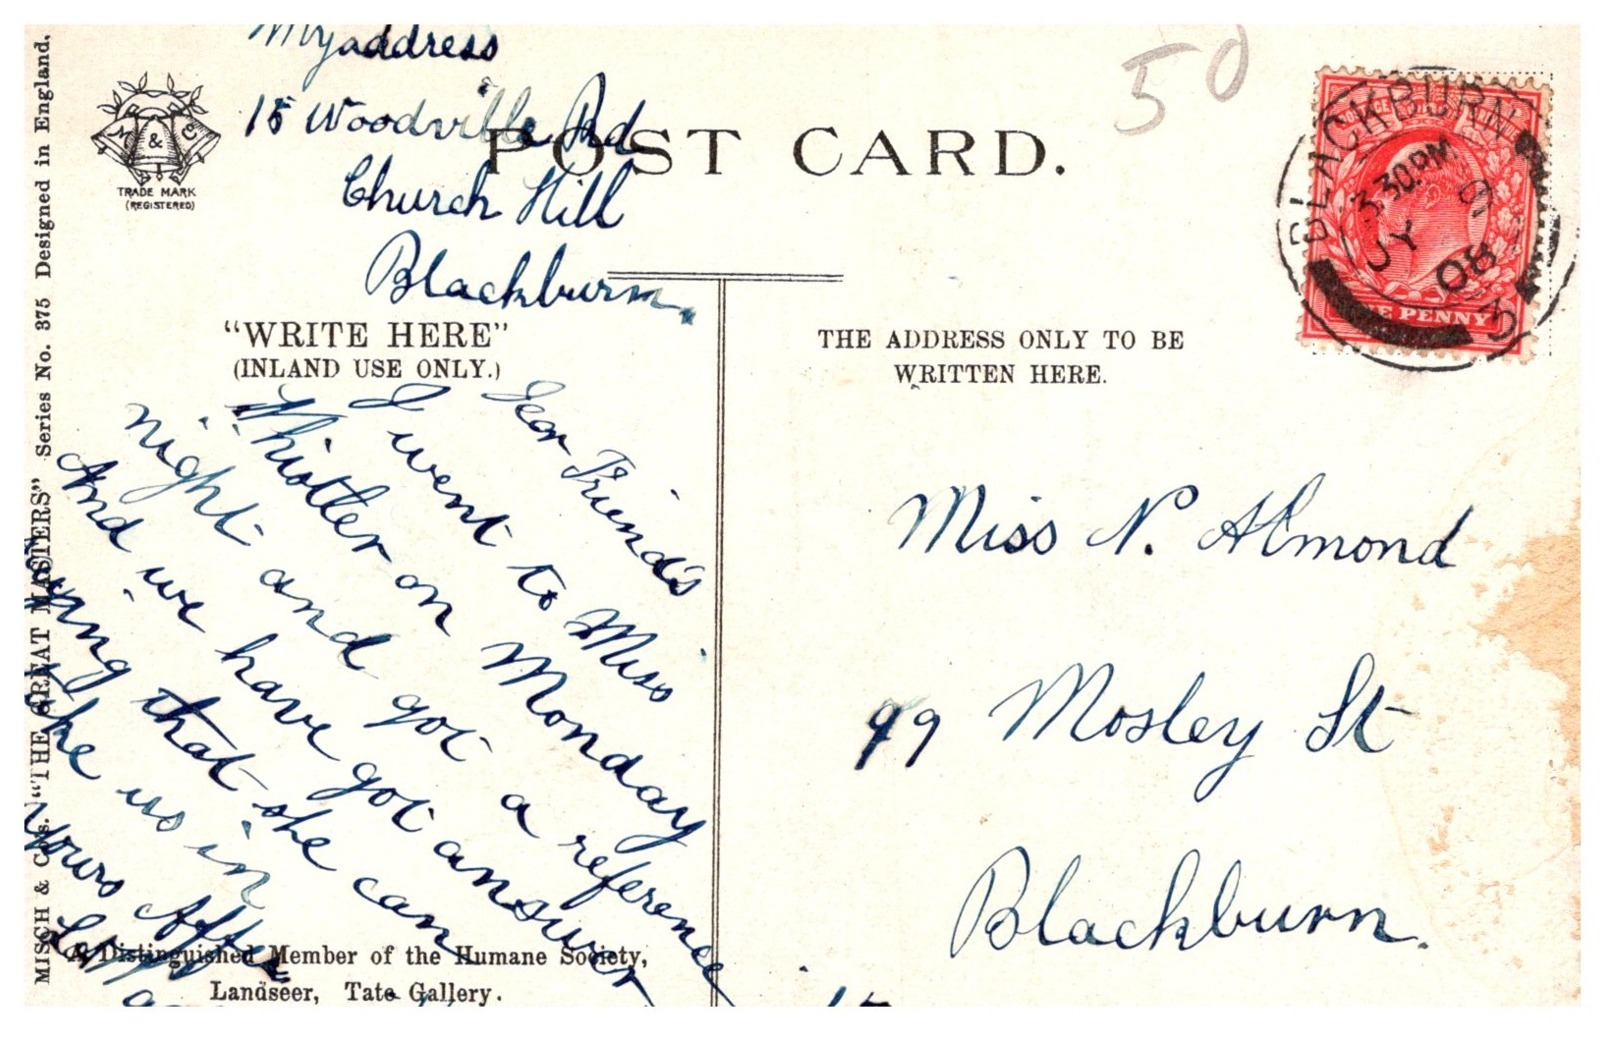 My address
15 Woodville Rd
Church Hill
Blackburn.
M & Co
TRADE MARK
(REGISTERED)
POST CARD.
50
BLACKBURN
3.30PM
JY 9
08
3
ONE PENNY
"WRITE HERE"
(INLAND USE ONLY.)
THE ADDRESS ONLY TO BE
WRITTEN HERE.
Dear Friends
I went to Miss
Whiotter on Monday
night and got a reference
And we have got answer
that she can
us in
Yours Affec
Miss N. Almond
99 Mosley St
Blackburn.
A Distinguished Member of the Humane Society,
Landseer, Tate Gallery.
MISCH & Co's. "THE GREAT MASTERS" Series No. 375 Designed in England.